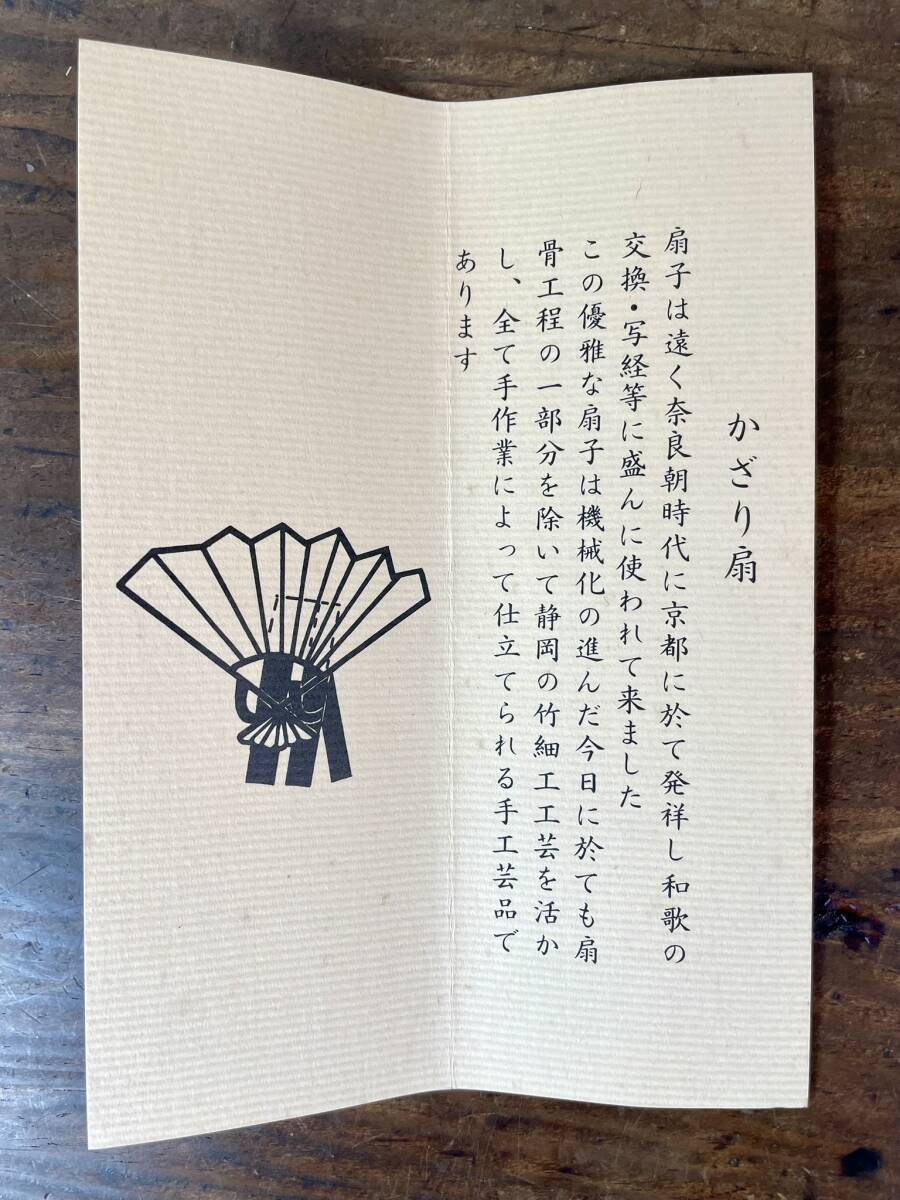 かざり扇
扇子は遠く奈良朝時代に京都に於て発祥し和歌の
交換・写経等に盛んに使われて来ました
この優雅な扇子は機械化の進んだ今日に於ても扇
骨工程の一部分を除いて静岡の竹細工工芸を活か
し、全て手作業によって仕立てられる手工芸品で
あります